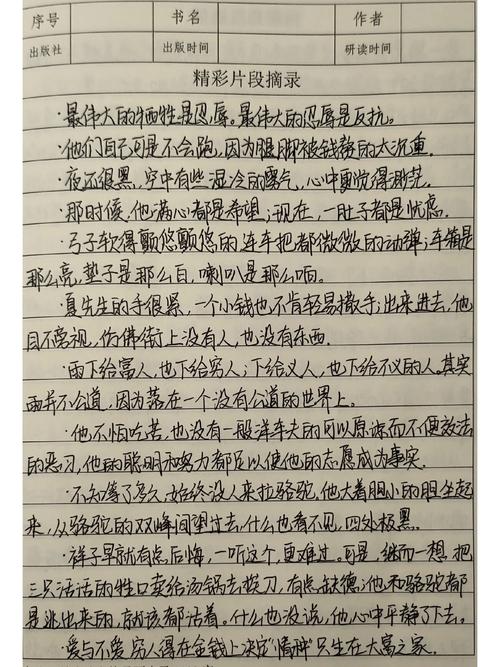 序号 书名 作者
出版社 出版时间 研读时间
精彩片段摘录
·最伟大的牺牲是忍辱。最伟大的忍辱是反抗。
·他们自己可是不会跑，因为腿脚被钱赘的太沉重.
·夜还很黑，空中有些湿冷的雾气，心中更觉得渺茫.
·那时候，他满心都是希望；现在，一肚子都是忧虑.
·弓子软得颤悠颤悠的连车把都微微的动弹；车箱是
那么亮，垫子是那么白，喇叭是那么响。
·夏先生的手很紧，一个小钱也不肯轻易撒手；出来进去，他
目不旁视，仿佛街上没有人，也没有东西.
·雨下给富人，也下给穷人；下给义人，也下给不义的人。其实
雨并不公道，因为落在一个没有公道的世界上。
·他不怕吃苦，也没有一般洋车夫的可以原谅而不便效法
的恶习，他的聪明和努力都足以使他的志愿成为事实.
·不知等了多久，始终没人来拉骆驼，他大着胆小的胆坐起
来，从骆驼的双峰间望过去，什么也看不见，四处极黑。
·祥子早就有点后悔，一听这个，更难过。可是，继而一想，把
三只活活的牲口卖给汤锅去挨刀，有点缺德；他和骆驼都
是逃出来的，就该都活着。什么也没说，他心中平静了下去。
·爱与不爱，穷人得在金钱上决定“情种”只生在大富之家.